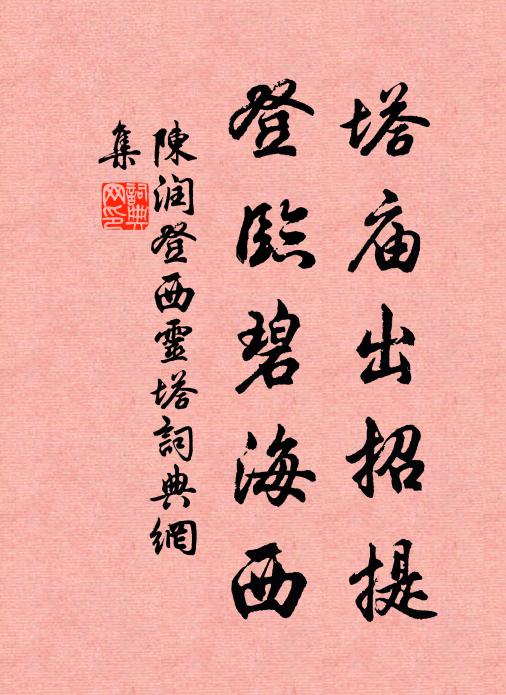 塔庙出招提
登臨碧海西
陳润登西靈塔詞典網
集
詞典网印